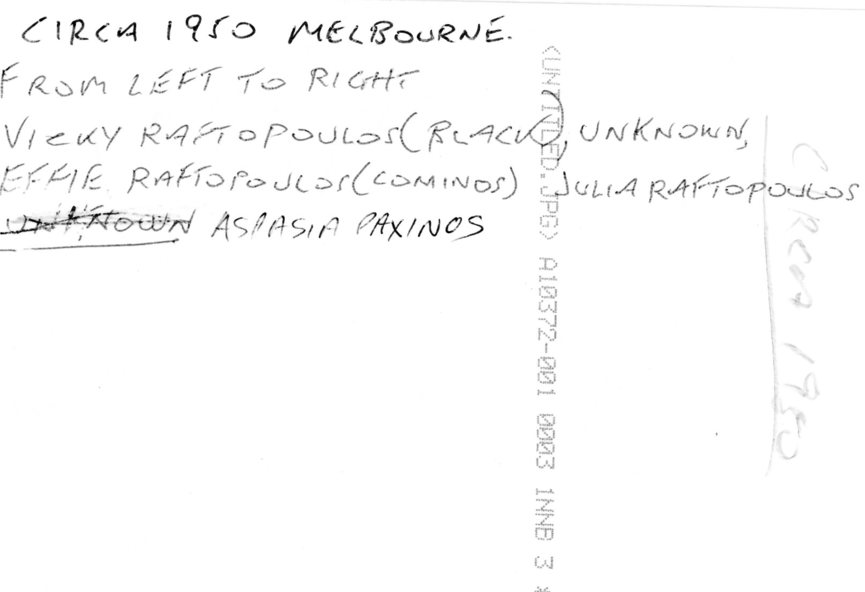 CIRCA 1950 MELBOURNE.
FROM LEFT TO RIGHT
VICKY RAFTOPOULOS (BLACK), UNKNOWN,
EFFIE RAFTOPOULOS (COMINOS) JULIA RAFTOPOULOS
UNKNOWN ASPASIA PAXINOS
<UNTITLED.JPG> A10372-001 0003 1NNB 3 *
CIRCA 1950